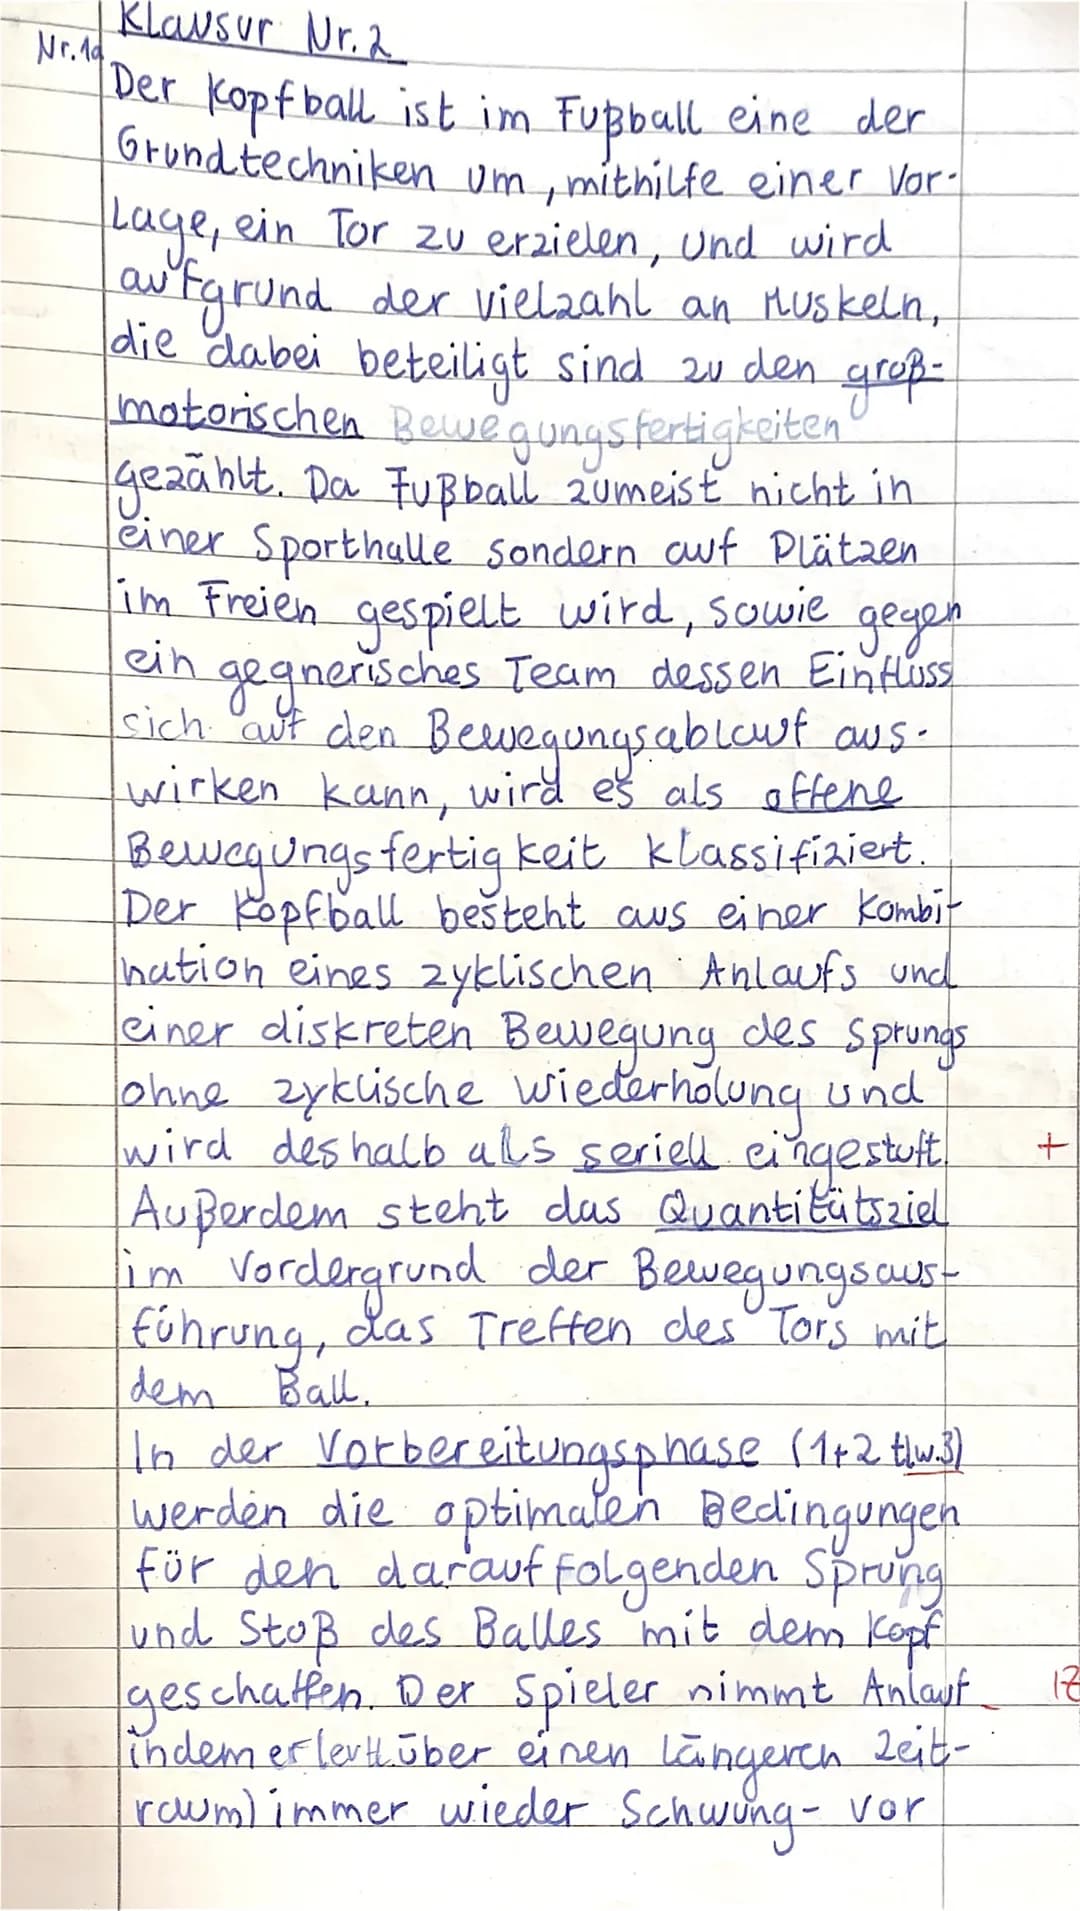 Klausur Nr. 2
Nr. 1a
Der Kopfball ist im Fußball eine der
Grundtechniken um, mithilfe einer Vor-
Lage, ein Tor zu erzielen, und wird
aufgrund der Vielzahl an Muskeln,
die dabei beteiligt sind zu den groß-
motorischen Bewegungsfertigkeiten
gezählt. Da Fußball zumeist nicht in
einer Sporthalle sondern auf Plätzen
im Freien gespielt wird, sowie gegen
ein gegnerisches Team dessen Einfluss
sich auf den Bewegungsablauf aus-
wirken kann, wird es als offene
Bewegungsfertigkeit klassifiziert.
Der Kopfball besteht aus einer Kombi-
nation eines zyklischen Anlaufs und
einer diskreten Bewegung des Sprungs
ohne zyklische Wiederholung und
wird deshalb als seriell eingestuft. +
Außerdem steht das Quantitätsziel
im Vordergrund der Bewegungsaus-
führung, das Treffen des Tors mit
dem Ball.
In der Vorbereitungsphase (1+2 tlw.3)
werden die optimalen Bedingungen
für den darauffolgenden Sprung
und Stoß des Balles mit dem Kopf
geschaffen. Der Spieler nimmt Anlauf
indem er über einen längeren Zeit-
raum) immer wieder Schwung- vor